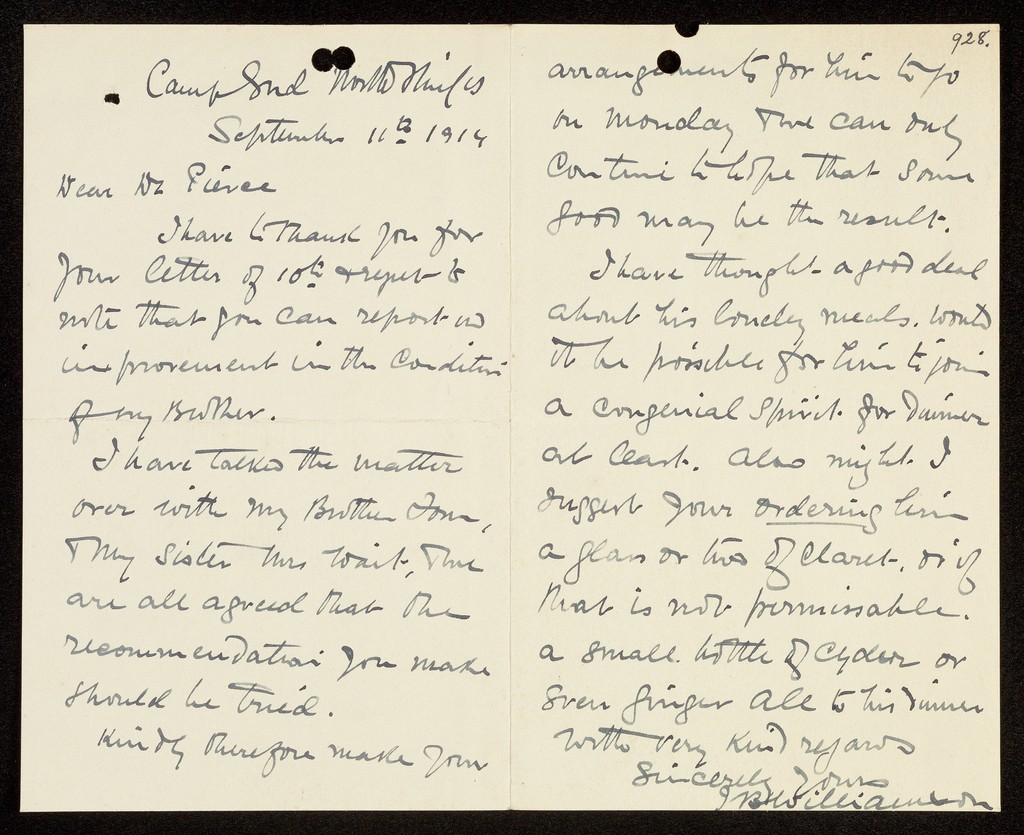 Camp End North Shields
September 11th 1914
Dear Dr Pierce
I have to thank you for
your letter of 10th & regret to
note that you can report no
improvement in the Condition
of my Brother.
I have talked the matter
over with my Brother Tom,
& my Sister Mrs Wait, & we
are all agreed that the
recommendation you make
should be tried.
Kindly therefore make your
928.
arrangements for him to go
on Monday & we can only
Continue to hope that some
good may be the result.
I have thought a good deal
about his lonely meals. Would
it be possible for him to join
a congenial spirit for dinner
at least. Also might I
suggest your ordering him
a glass or two of Claret, or if
that is not permissable.
a small bottle of Cyder or
even ginger ale to his dinner
With very kind regards
Sincerely yours
J B Williamson